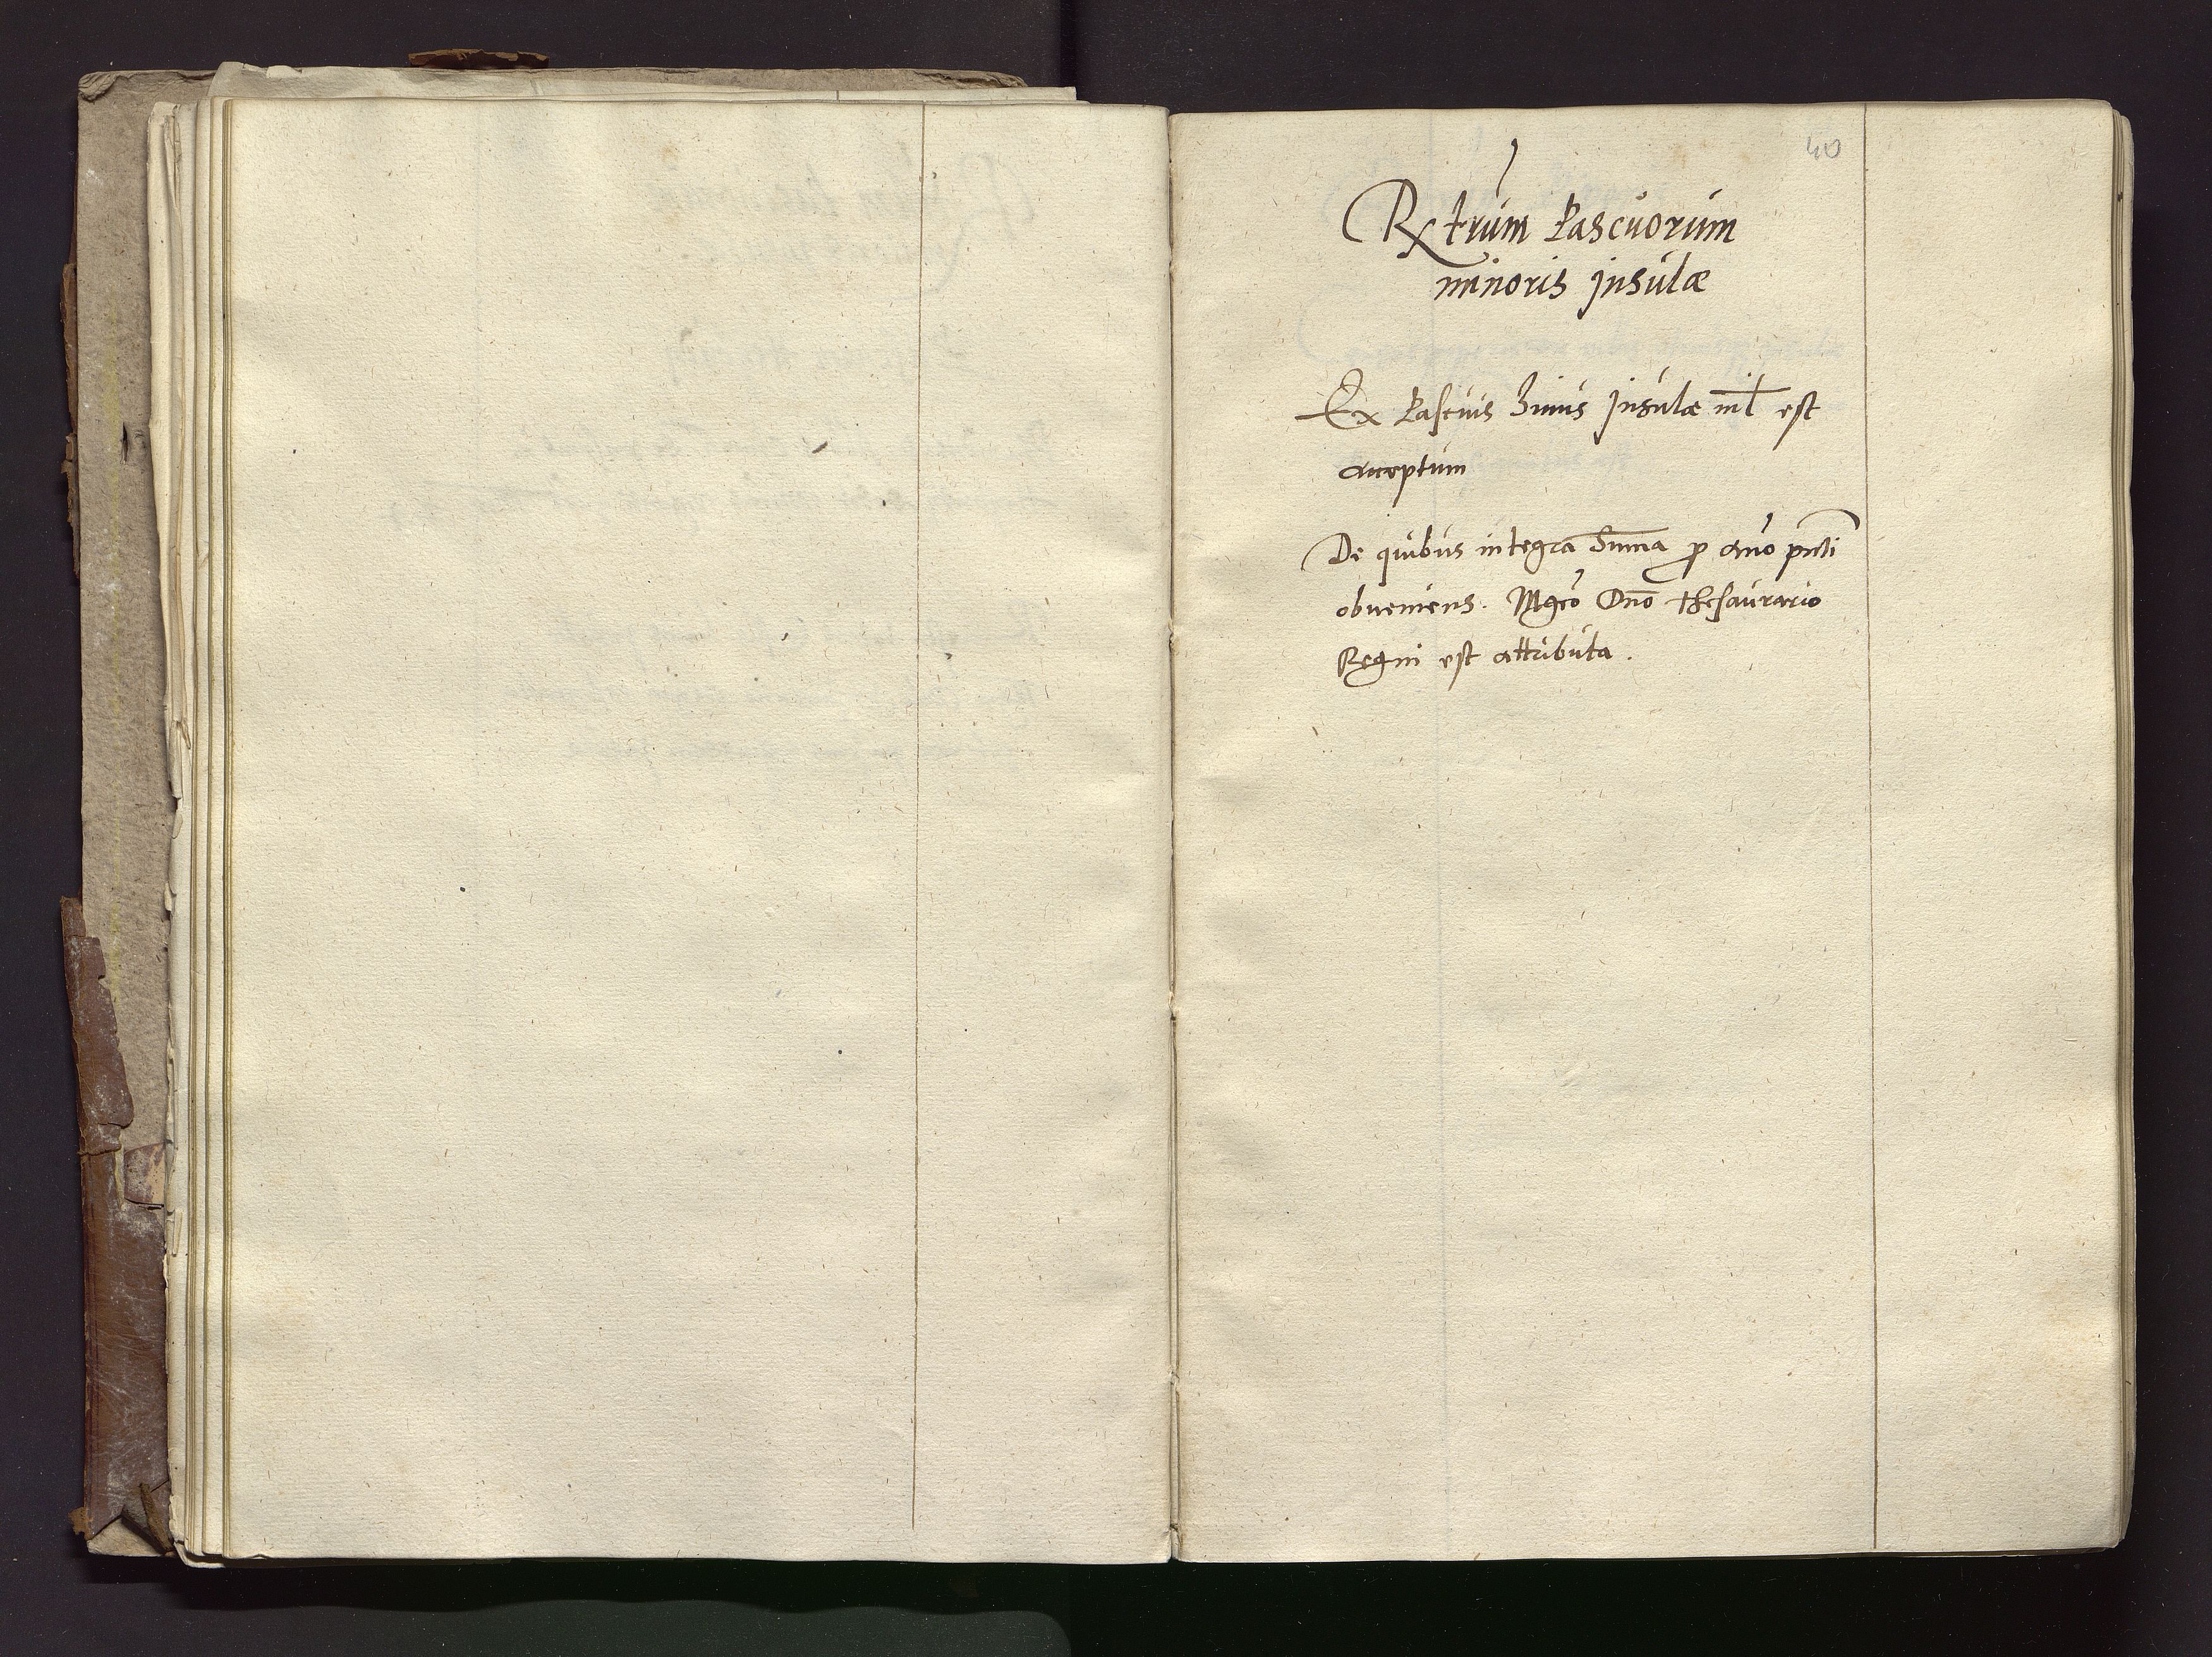 40
Rx trum Pascuorum
minoris Insulæ
Ex Pascuis huius Insulæ nil est
acceptum
De quibus integra Suma p Ano pnti
obueniens. Mgco Dno thesaurario
Regni est attributa.